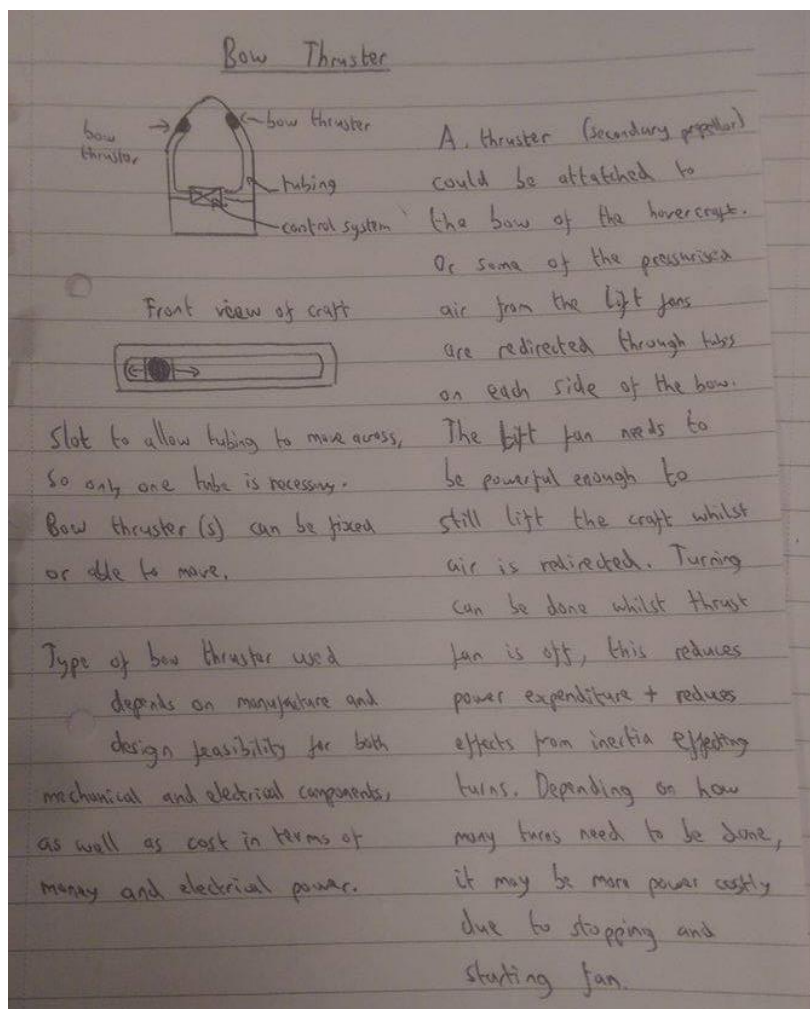 Bow Thruster
bow
thruster
bow thruster
tubing
control system
Front view of craft
Slot to allow tubing to move across,
so only one tube is necessary.
Bow thruster(s) can be fixed
or able to move.
Type of bow thruster used
depends on manufacture and
design feasibility for both
mechanical and electrical components,
as well as cost in terms of
money and electrical power.
A. thruster (secondary propellor)
could be attatched to
the bow of the hovercraft.
Or some of the pressurised
air from the lift fans
are redirected through tubes
on each side of the bow.
The lift fan needs to
be powerful enough to
still lift the craft whilst
air is redirected. Turning
can be done whilst thrust
fan is off, this reduces
power expenditure + reduces
effects from inertia effecting
turns. Depending on how
many turns need to be done,
it may be more power costly
due to stopping and
starting fan.